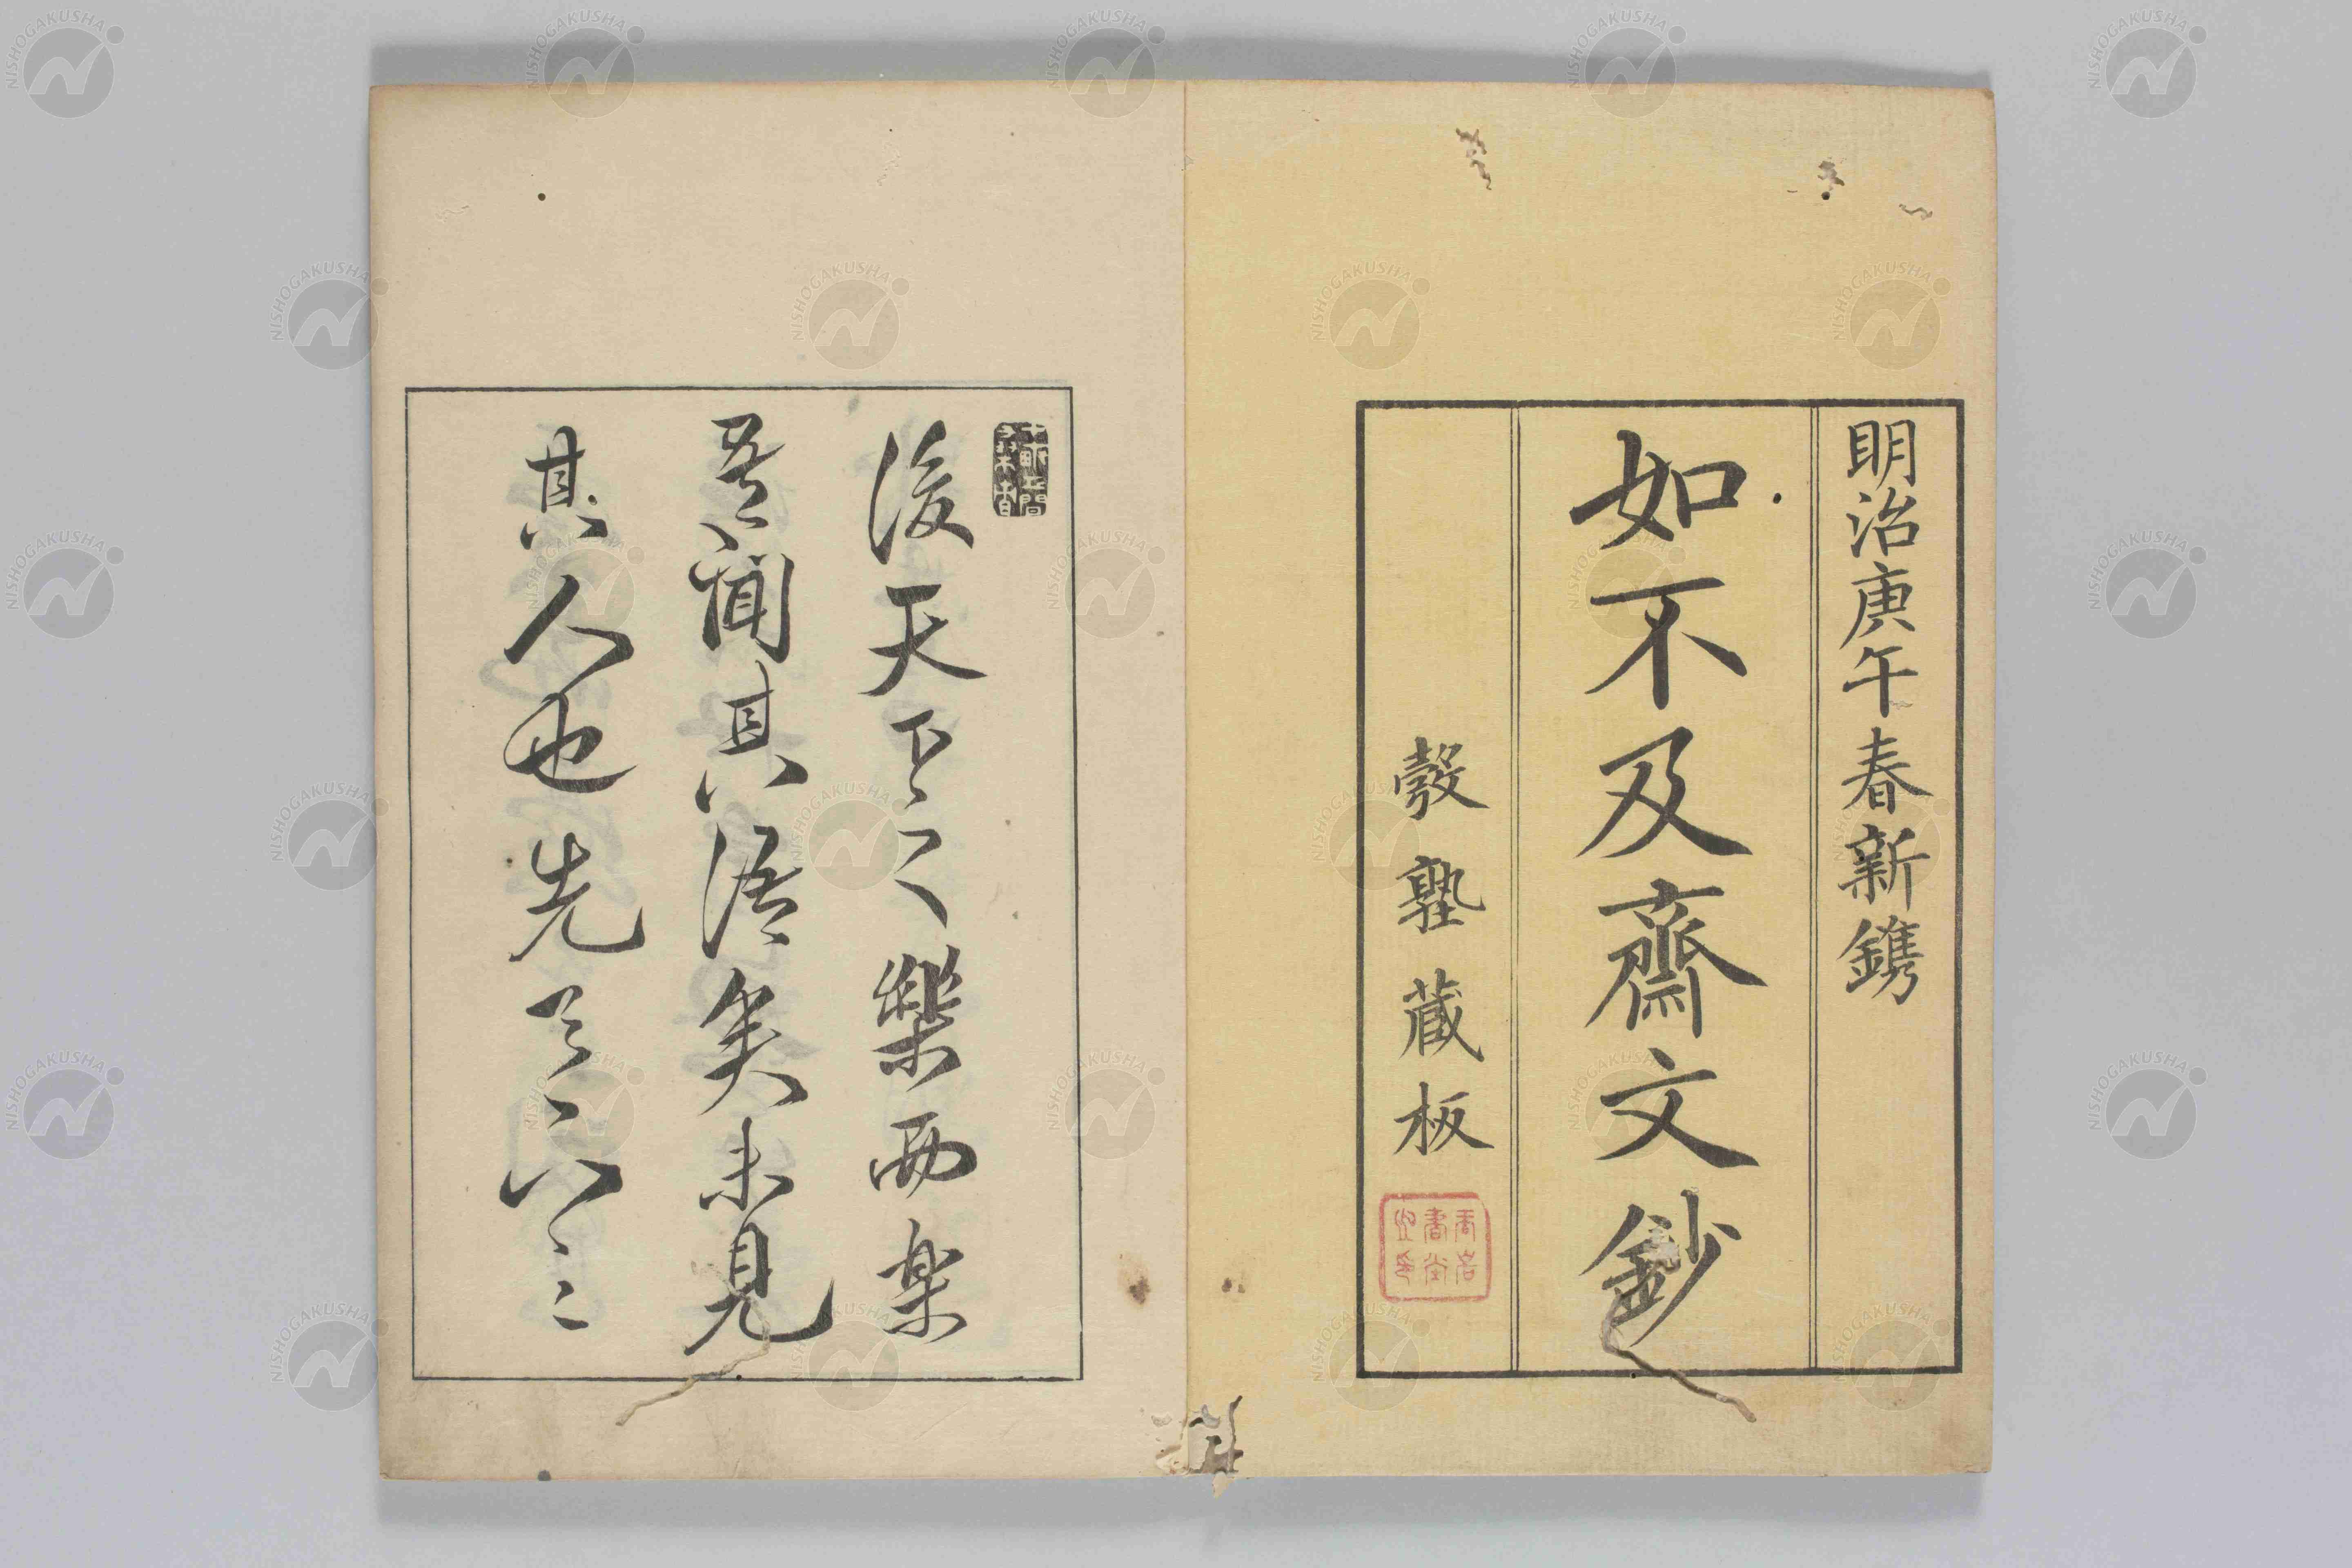 明治庚午春新鐫
如不及齋文鈔
彀塾藏板
後天下之樂而楽
吾聞其語矣未見
其人也先